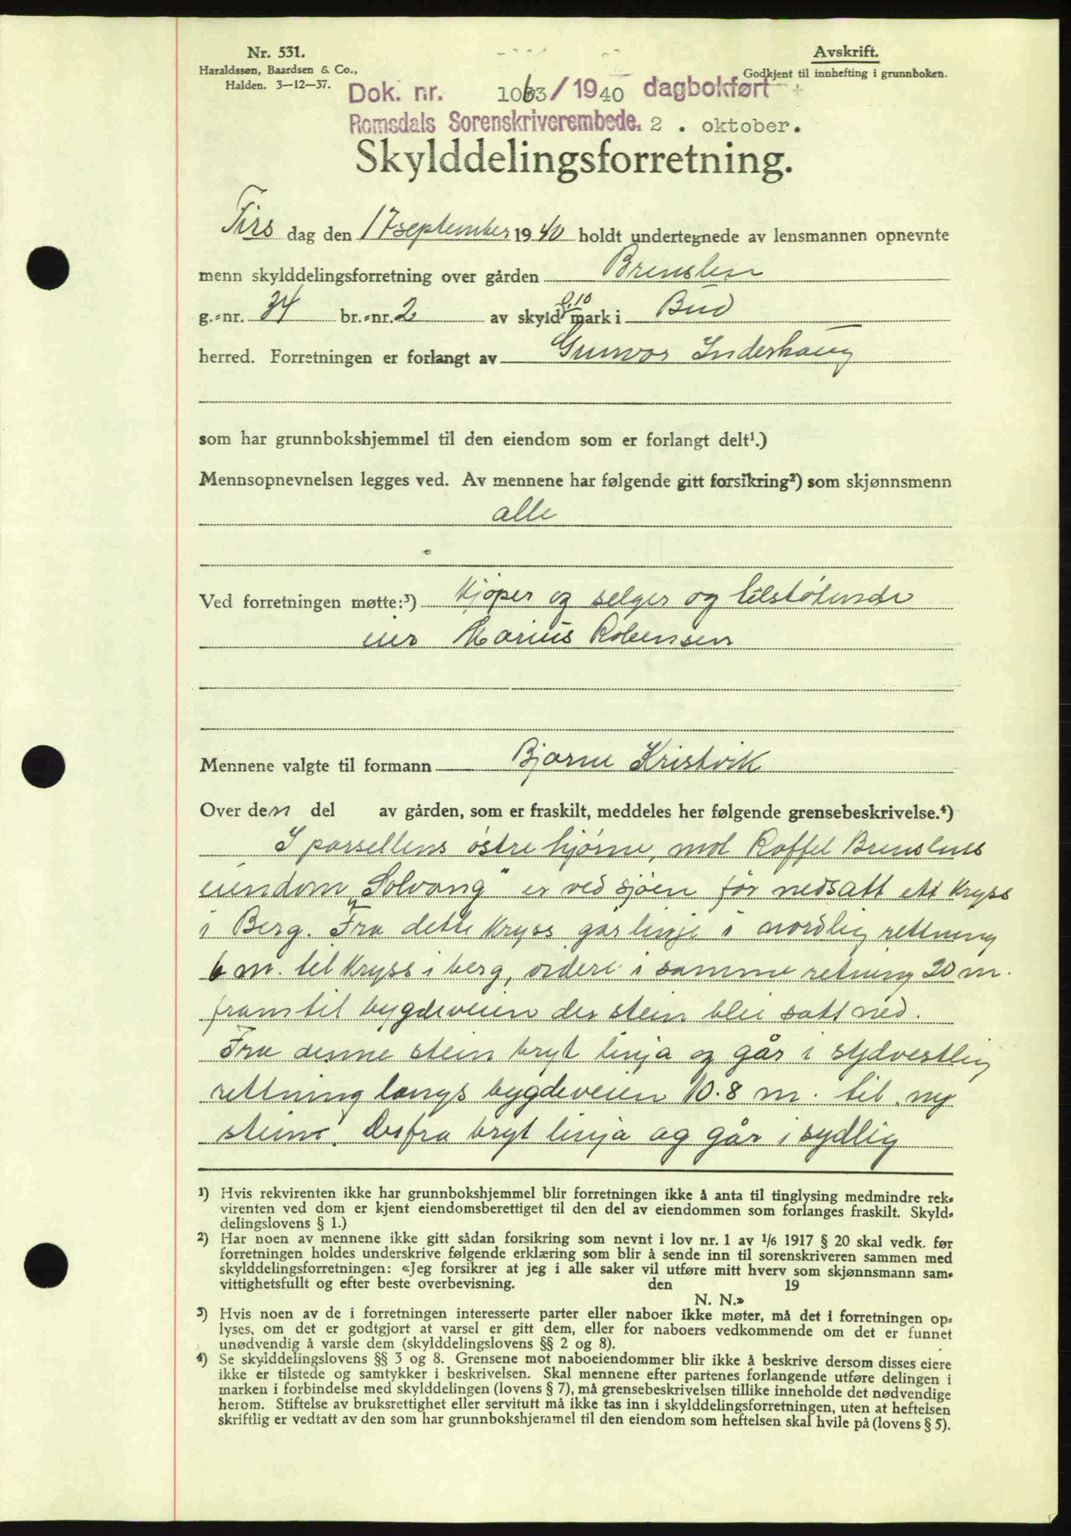 Nr. 531.
Haraldssøn, Baardsen & Co.,
Halden. 3—12—37.
Avskrift.
Godkjent til innhefting i grunnboken.
Dok. nr. 1063/1940 dagbokført
Romsdals Sorenskriverembede. 2 . oktober.
Skylddelingsforretning.
Tirs dag den 17 september 1940 holdt undertegnede av lensmannen opnevnte
menn skylddelingsforretning over gården Brenslen
g.-nr. 34 br.-nr. 2 av skyld 0.10 mark i Bud
herred. Forretningen er forlangt av Gunvor Inderhaug
som har grunnbokshjemmel til den eiendom som er forlangt delt¹.)
Mennsopnevnelsen legges ved. Av mennene har følgende gitt forsikring²) som skjønnsmenn
alle
Ved forretningen møtte:³) kjøper og selger og tilstøtende
eier Marius Robensen
Mennene valgte til formann Bjarne Kristvik
Over den del av gården, som er fraskilt, meddeles her følgende grensebeskrivelse.⁴)
I parsellens østre hjørne, mot Roffel Brenslens
eiendom „Solvang" er ved sjøen før nedsatt ett kryss
i Berg. Fra dette kryss går linje i nordlig rettning
6 m. til kryss i berg, videre i samme retning 20 m.
fram til bygdeveien der stein blei satt ned.
Fra denne stein bryt linja og går i sydvestlig
rettning langs bygdeveien 10.8 m. til ny
stein. Derfra bryt linja og går i sydlig
¹) Hvis rekvirenten ikke har grunnbokshjemmel blir forretningen ikke å anta til tinglysing medmindre rek-
virenten ved dom er kjent eiendomsberettiget til den del av eiendommen som forlanges fraskilt. Skyld-
delingslovens § 1.)
²) Har noen av mennene ikke gitt sådan forsikring som nevnt i lov nr. 1 av 1/6 1917 § 20 skal vedk. før
forretningen holdes underskrive følgende erklæring som blir å sende inn til sorenskriveren sammen med
skylddelingsforretningen: «Jeg forsikrer at jeg i alle saker vil utføre mitt hverv som skjønnsmann sam-
vittighetsfullt og efter beste overbevisning. den 19
N. N.»
³) Hvis noen av de i forretningen interesserte parter eller naboer ikke møter, må det i forretningen op-
lyses, om det er godtgjort at varsel er gitt dem, eller for naboers vedkommende om det er funnet
unødvendig å varsle dem (skylddelingslovens §§ 2 og 8).
⁴) Se skylddelingslovens §§ 3 og 8. Grensene mot naboeiendommer blir ikke å beskrive dersom disses eiere
ikke er tilstede og samtykker i beskrivelsen. Skal mennene efter partenes forlangende utføre delingen i
marken i forbindelse med skylddelingen (lovens § 7), må grensebeskrivelsen tillike inneholde det nødvendige
herom. Stiftelse av bruksrettighet eller servitutt må ikke tas inn i skylddelingsforretningen, uten at heftelsen
skriftlig er vedtatt av den som har grunnbokshjemmel til den eiendom som heftelsen skal hvile på (lovens § 5).